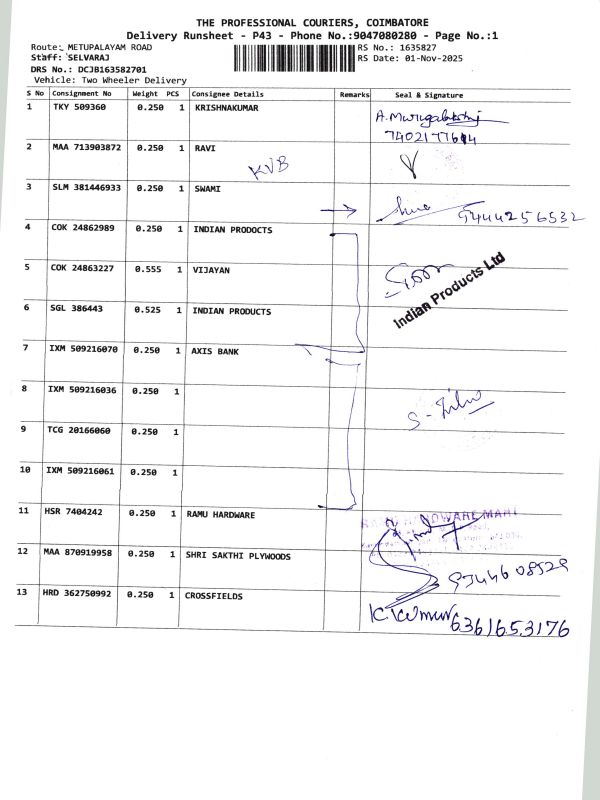 THE PROFESSIONAL COURIERS, COIMBATORE
Delivery Runsheet - P43 - Phone No.:9047080280 - Page No.:1
Route: METUPALAYAM ROAD RS No.: 1635827
Staff: SELVARAJ RS Date: 01-Nov-2025
DRS No.: DCJB163582701
Vehicle: Two Wheeler Delivery
S No Consignment No Weight PCS Consignee Details Remarks Seal & Signature
1 TKY 509360 0.250 1 KRISHNAKUMAR
7402177614
2 MAA 713903872 0.250 1 RAVI
KVB
3 SLM 381446933 0.250 1 SWAMI
9444256532
4 COK 24862989 0.250 1 INDIAN PRODOCTS
5 COK 24863227 0.555 1 VIJAYAN
Indian Products Ltd
6 SGL 386443 0.525 1 INDIAN PRODUCTS
7 IXM 509216070 0.250 1 AXIS BANK
8 IXM 509216036 0.250 1
9 TCG 20166060 0.250 1
10 IXM 509216061 0.250 1
11 HSR 7404242 0.250 1 RAMU HARDWARE
12 MAA 870919958 0.250 1 SHRI SAKTHI PLYWOODS
9344608529
13 HRD 362750992 0.250 1 CROSSFIELDS
K. Kumar 6361653176